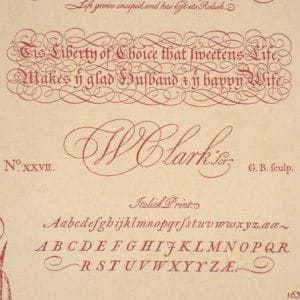 Life grown insipid, and has lost its Relish.
Tis Liberty of Choice that sweetens Life,
Makes ÿ glad Husband & ÿ happy Wife.
WClark Scr.
No. XXVII.
G. B. sculp.
Italick Print
Aabcdefghijklmnopqrsſtuvvwxyz.ææ
ABCDEFGHIJKLMNOPQR
RSTUVWXYYZÆ.